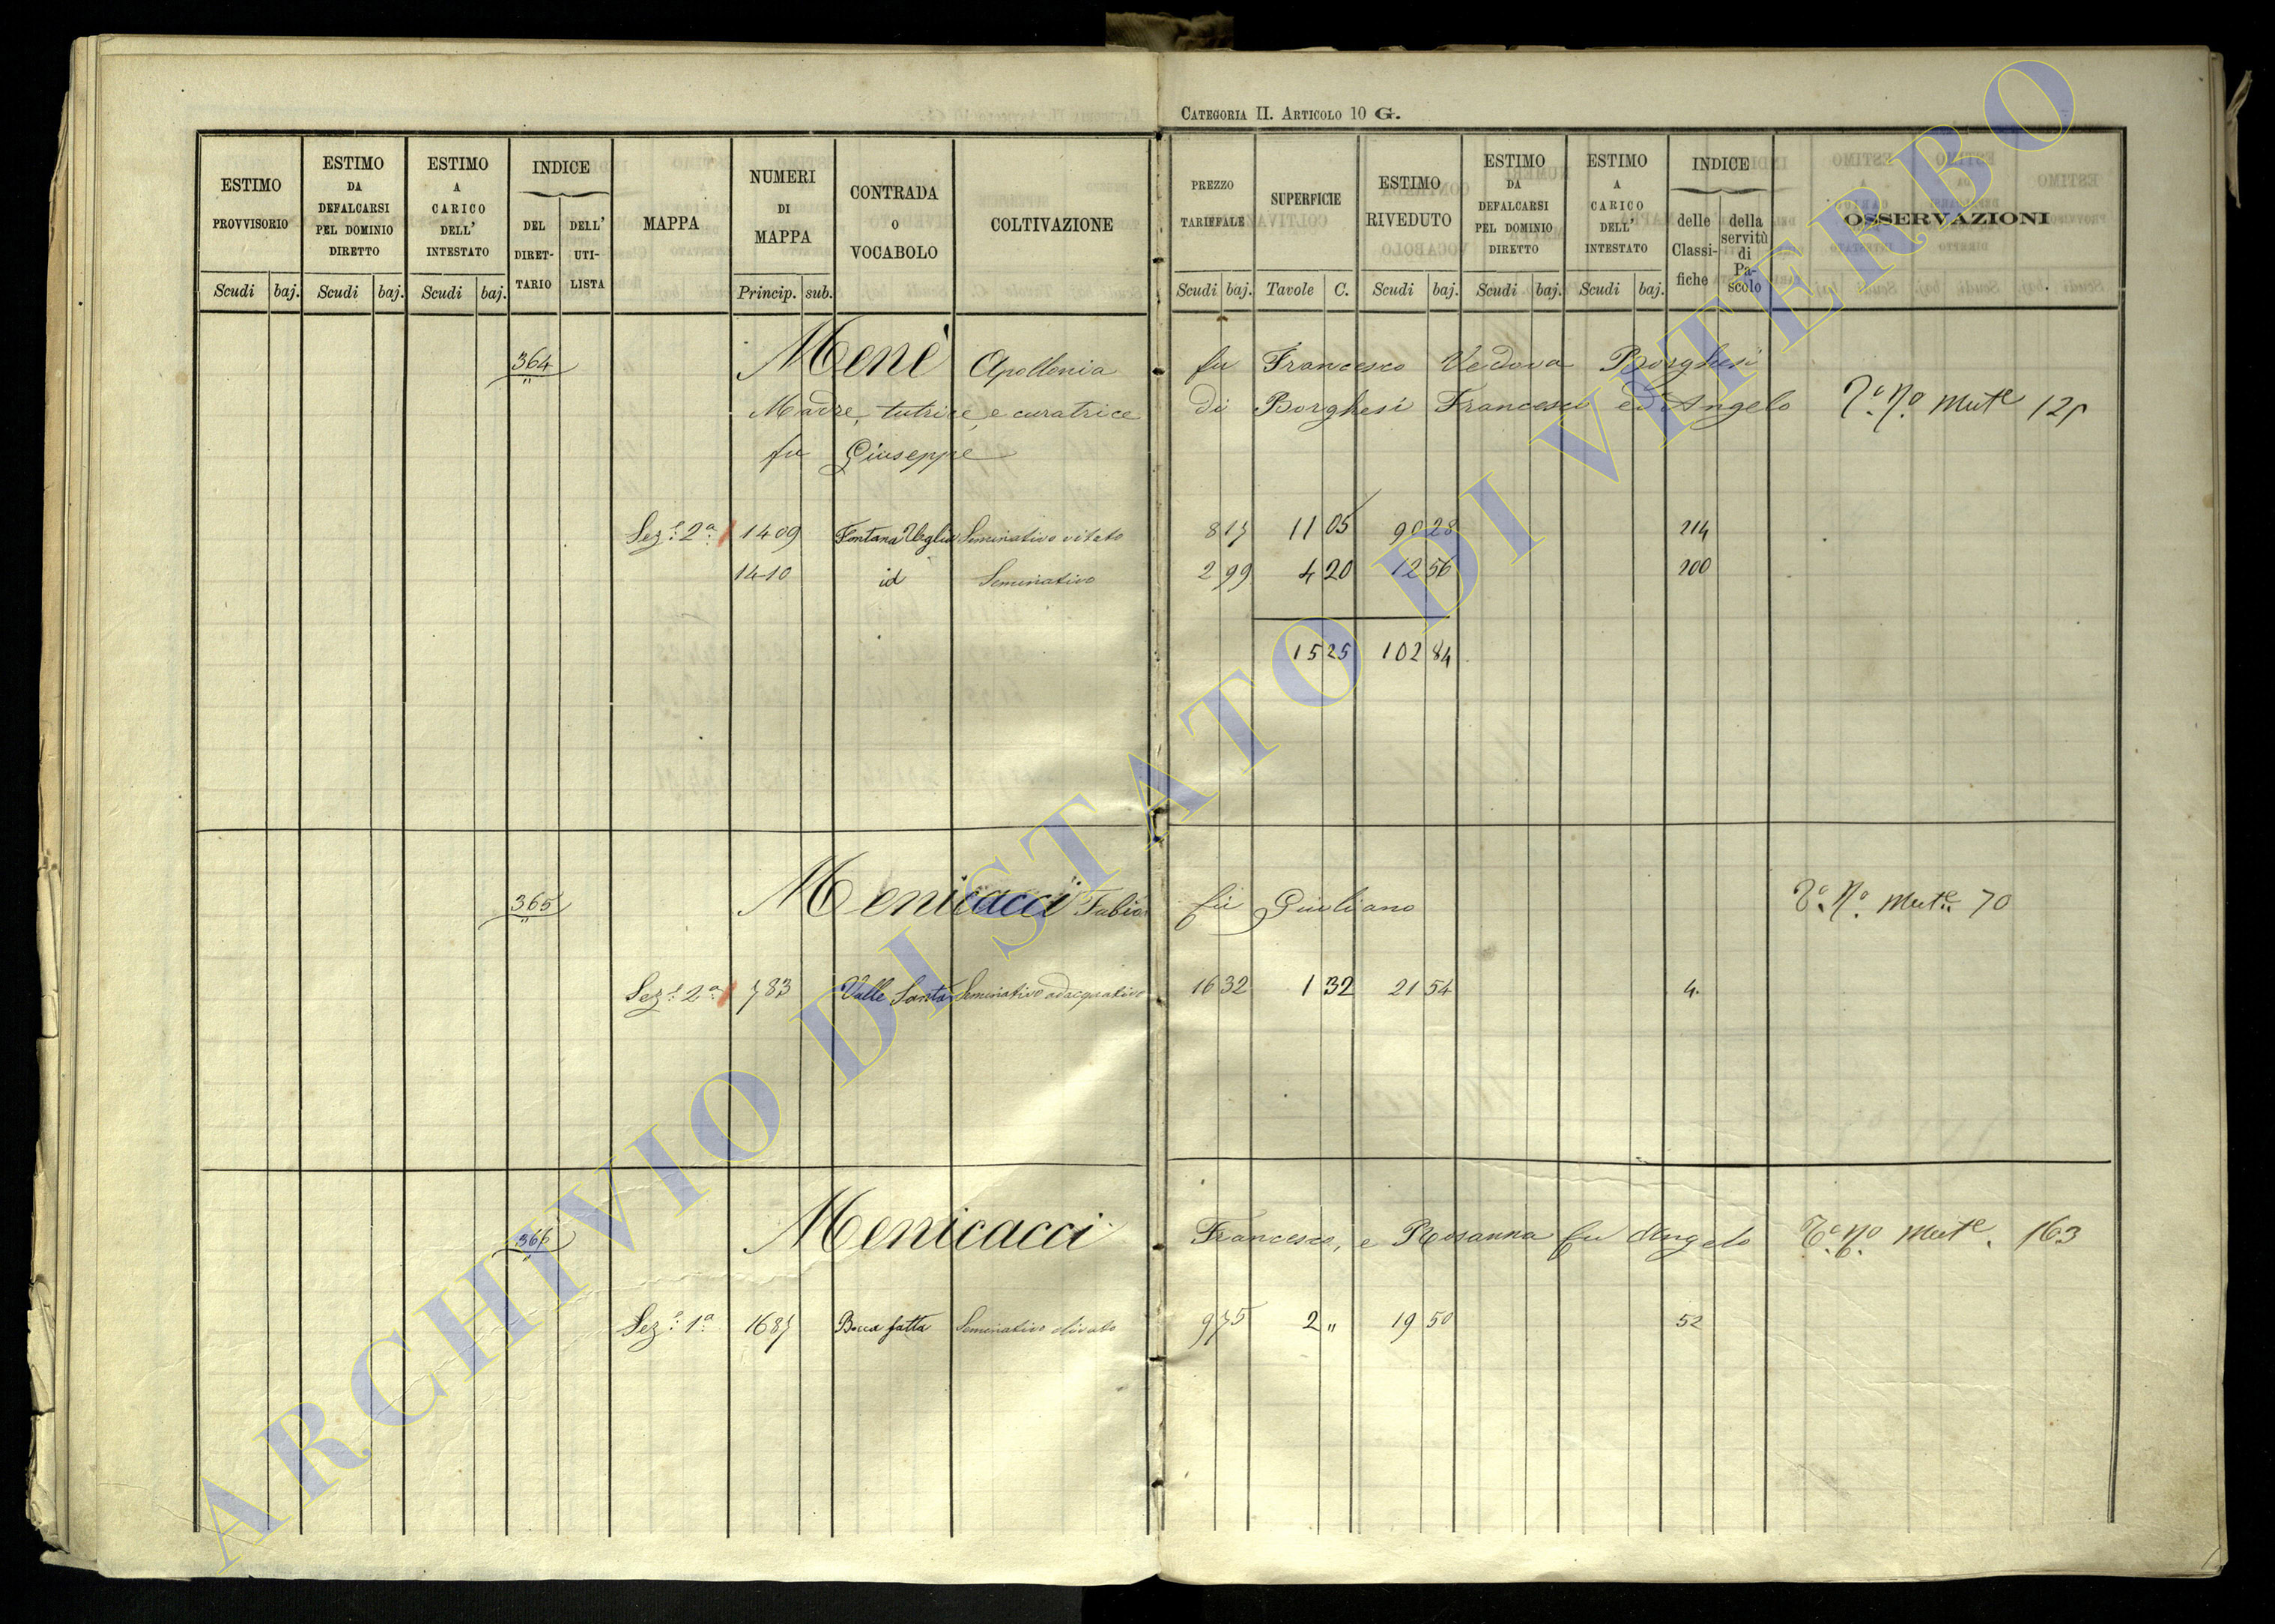 CATEGORIA II. ARTICOLO 10 G.
ESTIMO PROVVISORIO
ESTIMO DA DEFALCARSI PEL DOMINIO DIRETTO
ESTIMO A CARICO DELL' INTESTATO
INDICE
DEL DIRET-TARIO
DELL' UTI-LISTA
MAPPA
NUMERI DI MAPPA
CONTRADA O VOCABOLO
COLTIVAZIONE
PREZZO TARIFFALE
SUPERFICIE
ESTIMO RIVEDUTO
ESTIMO DA DEFALCARSI PEL DOMINIO DIRETTO
ESTIMO A CARICO DELL' INTESTATO
INDICE
delle Classi-fiche
della servitù di Pa-scolo
OSSERVAZIONI
Scudi baj. Scudi baj. Scudi baj. Princip. sub. Scudi baj. Tavole C. Scudi baj. Scudi baj. Scudi baj.
364 Menè Apollonia fu Francesco Vedova Borghesi
Madre, tutrice, e curatrice di Borghesi Francesco ed Angelo
fu Giuseppe
Sez.e 2a 1409 Fontana Seminativo vitato 8 17 11 05 90 28 214
1410 id Seminativo 2 99 4 20 12 56 200
15 25 102 84
365 Menicacci Fabio fu Giuliano N.o Mut.e 70
Sez.e 2a 783 Valle Santa Seminativo adacquativo 16 32 1 32 21 54 4
366 Menicacci Francesco, e Rosanna fu Angelo N.o Mut.e 163
Sez.e 1a 1687 Bocca fatta Seminativo olivato 9 75 2 „ 19 50 52
ARCHIVIO DI STATO DI VITERBO